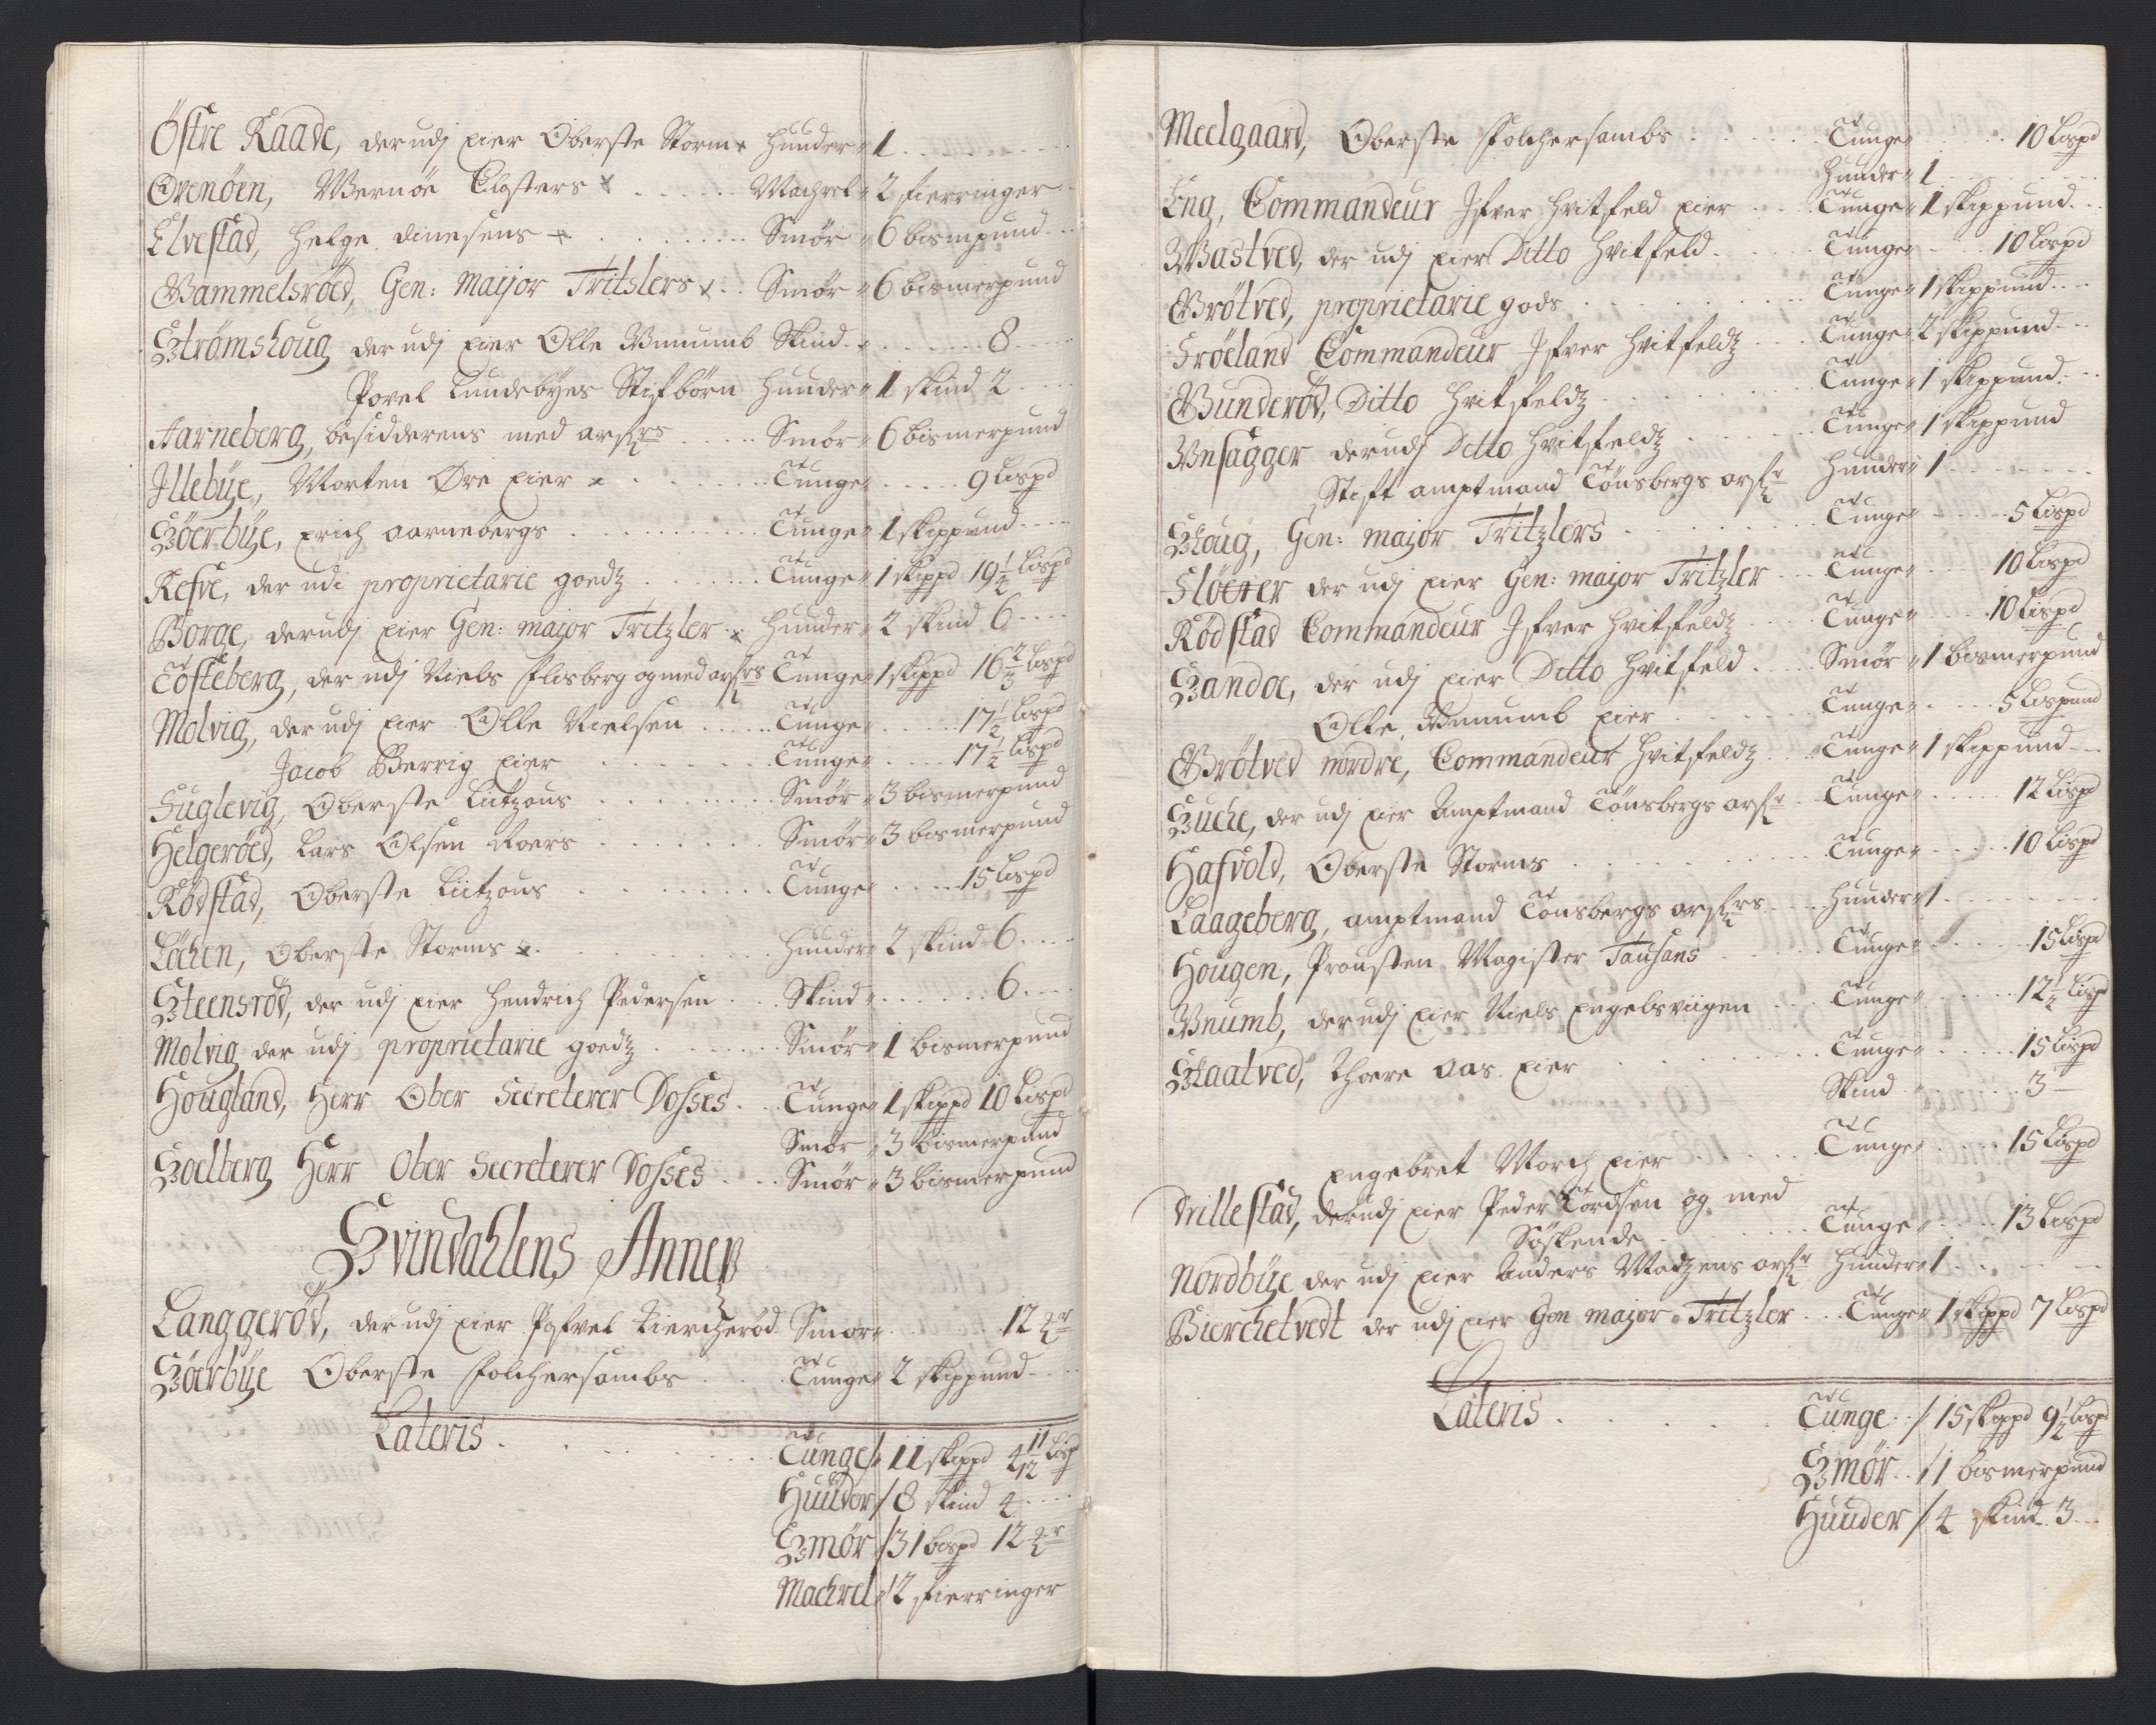 Östre Raade, der udj eier Oberste Storm x Huuder " 1
Ovenöen, Wernöe Closters x Machrel " 2 fierringer
Elvestad, Helge dinesens x Smör " 6 bismpund
Gammelsröed, Gen: Maijor Tritslers x Smör " 6 bismerpund
Strömshoug der udj eier Olle Wnnumb Skind 8
Povel Lundebÿes Stifbörn Huuder " 1 skind 2
Aarneberg, besidderens med arfrs Smör " 6 bismerpund
Illebÿe, Morten Öre eier x Tunge " 9 Lispd
Söerbÿe, Erich Aarnebergs Tunge " 1 skippund
Refve, der udi proprietarie goedz Tunge " 1 skippd 19 1/4 Lispd
Borge, der udj eier Gen: major Tritzler x Huuder " 2 skind 6
Tosteberg, der udj Niels Elisberg og med arfrs Tunge " 1 skippd 16 2/3 Lispd
Molvig, der udj eier Olle Nielsen Tunge " 17 1/2 Lispd
Jacob Berrig eier Tunge " 17 1/2 Lispd
Fuglevig, Oberste Lützous Smör " 3 bismerpund
Helgeröed, Lars Olsen Roers Smör " 3 bismerpund
Rödstad, Oberste Lützous Tunge " 15 Lispd
Löchen, Oberste Storms x Huuder " 2 skind 6
Steensröd, der udj eier Hendrich Pedersen Skind " 6
Molvig der udj proprietarie goedz Smör " 1 bismerpund
Hougland, Herr Ober Secreterer Dosses Tunge " 1 skippd 10 Lispd
Smör " 3 bismerpund
Soelberg Herr Ober Secreterer Dosses Smör " 3 bismerpund
Svindahlens Annex
Langgeröd, der udj eier Pofvel Kiercheröd Smör " 12 mr
Söerbÿe Oberste Folchersambs Tunge " 2 skippund
Lateris Tunge / 11 skippd 4 11/12 Lispd
Huuder / 8 skind 4
Smör / 31 bispd 12 mr
Machrel " 2 fierringer
Meelgaard, Oberste Folchersambs Tunge " 10 Lispd
Huuder " 1
Eng, Commandeur Ifver Hvitfeld eier Tunge " 1 skippund
Wastved, der udj eier Ditto Hvitfeld Tunge " 10 Lispd
Grötved, proprietarie gods Tunge " 1 skippund
Fröeland Commandeur Ifver Hvitfeldz Tunge " 2 skippund
Gunderöd, Ditto Hvitfeldz Tunge " 1 skippund
Wnsagger der udj Ditto Hvitfeldz Tunge " 1 skippund
Stift amptmand Tönsbergs arfr Huuder " 1
Skoug, Gen: major Tritzlers Tunge " 5 Lispd
Flöeter der udj eier Gen: major Tritzler Tunge " 10 Lispd
Rödstad Commandeur Ifver Hvitfeldz Tunge " 10 Lispd
Sandoe, der udj eier Ditto Hvitfeld Smör " 1 bismerpund
Olle Wnnumb eier Tunge " 5 Lispund
Grötved nordre, Commandeur Hvitfeldz Tunge " 1 skippund
Buche, der udj eier Amptmand Tönsbergs arfr Tunge " 12 Lispd
Hafvold, Oberste Storms Tunge " 10 Lispd
Laageberg, amptmand Tönsbergs arfrs Huuder " 1
Hougen, Prousten Magister Tausans Tunge " 15 Lispd
Wnumb, der udj eier Niels Engelsviigen Tunge " 12 1/2 Lispd
Skaatved, Thore Aas eier Tunge " 15 Lispd
Skind " 3
Engebret Morch eier Tunge " 15 Lispd
Drillestad, der udj eier Peder Tordsen og med
Söskende Tunge " 13 Lispd
Nordbÿe der udj eier Anders Madzens arfr Huuder " 1
Bierchetvedt der udj eier Gen major Tritzler Tunge " 1 skippd 7 Lispd
Lateris Tunge / 15 skippd 9 1/2 Lispd
Smör / 1 bismerpund
Huuder / 4 skind 3